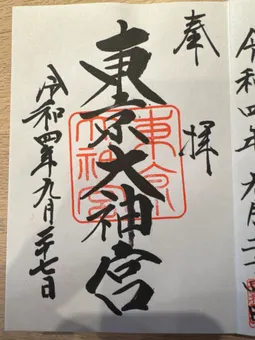 奉拝
東京大神宮
東京大神宮
令和四年九月二十七日
令和四年九月二